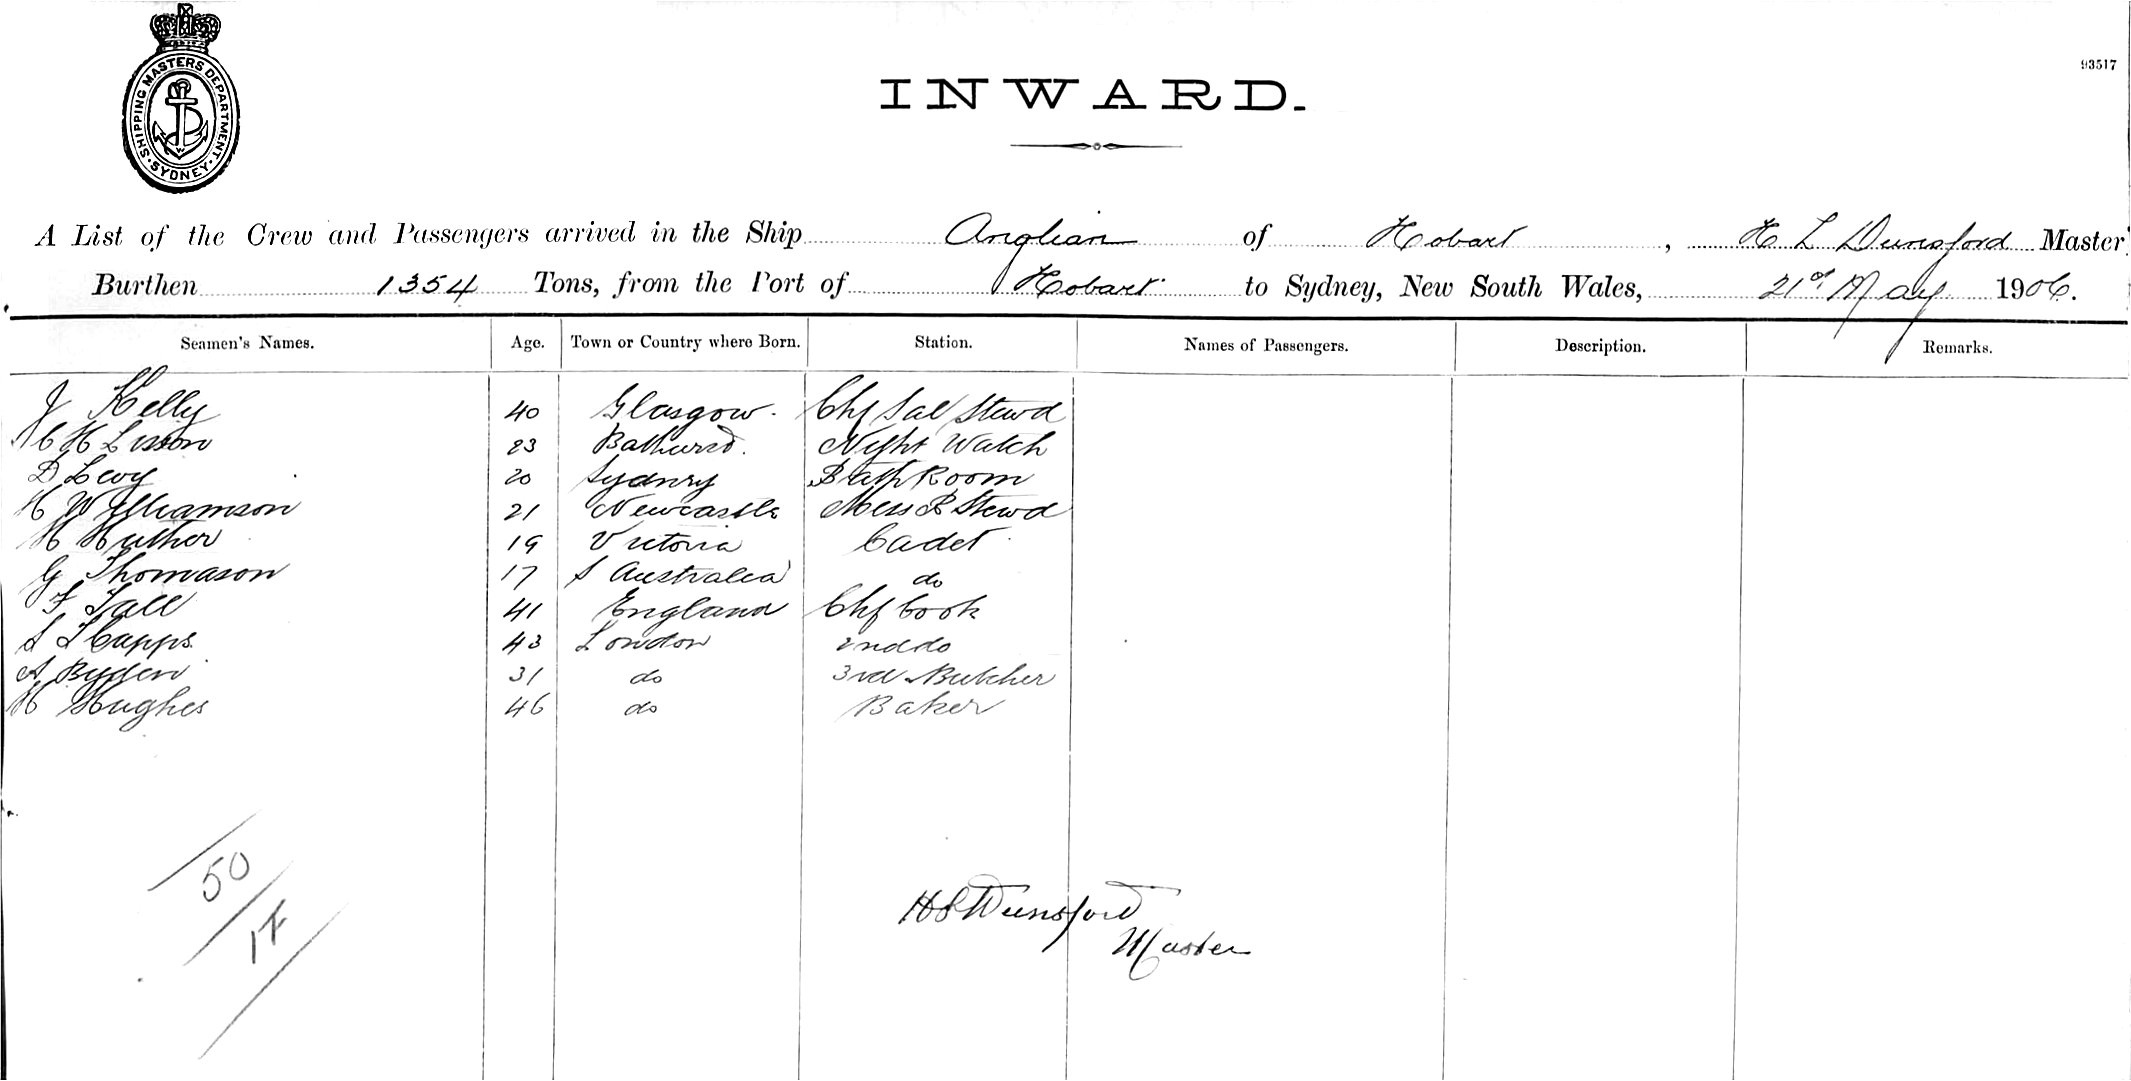 SHIPPING MASTERS DEPARTMENT · SYDNEY ·
93517
INWARD.
A List of the Crew and Passengers arrived in the Ship Anglian of Hobart, H L Dunsford Master
Burthen 1354 Tons, from the Port of Hobart to Sydney, New South Wales, 21st May 1906.
Seamen's Names. Age. Town or Country where Born. Station. Names of Passengers. Description. Remarks.
J Kelly 40 Glasgow. Chf Sal Stewd
C H Lisson 23 Bathurst. Night Watch
D Levy 20 Sydney Bath Room
H Williamson 21 Newcastle Mess R Stewd
H Huther 19 Victoria Cadet
G Thomason 17 S Australia do
F Tall 41 England Chf Cook
Capps 43 London 2nd do
A 31 do 3rd Butcher
H Hughes 46 do Baker
50
17
Dunsford
Master